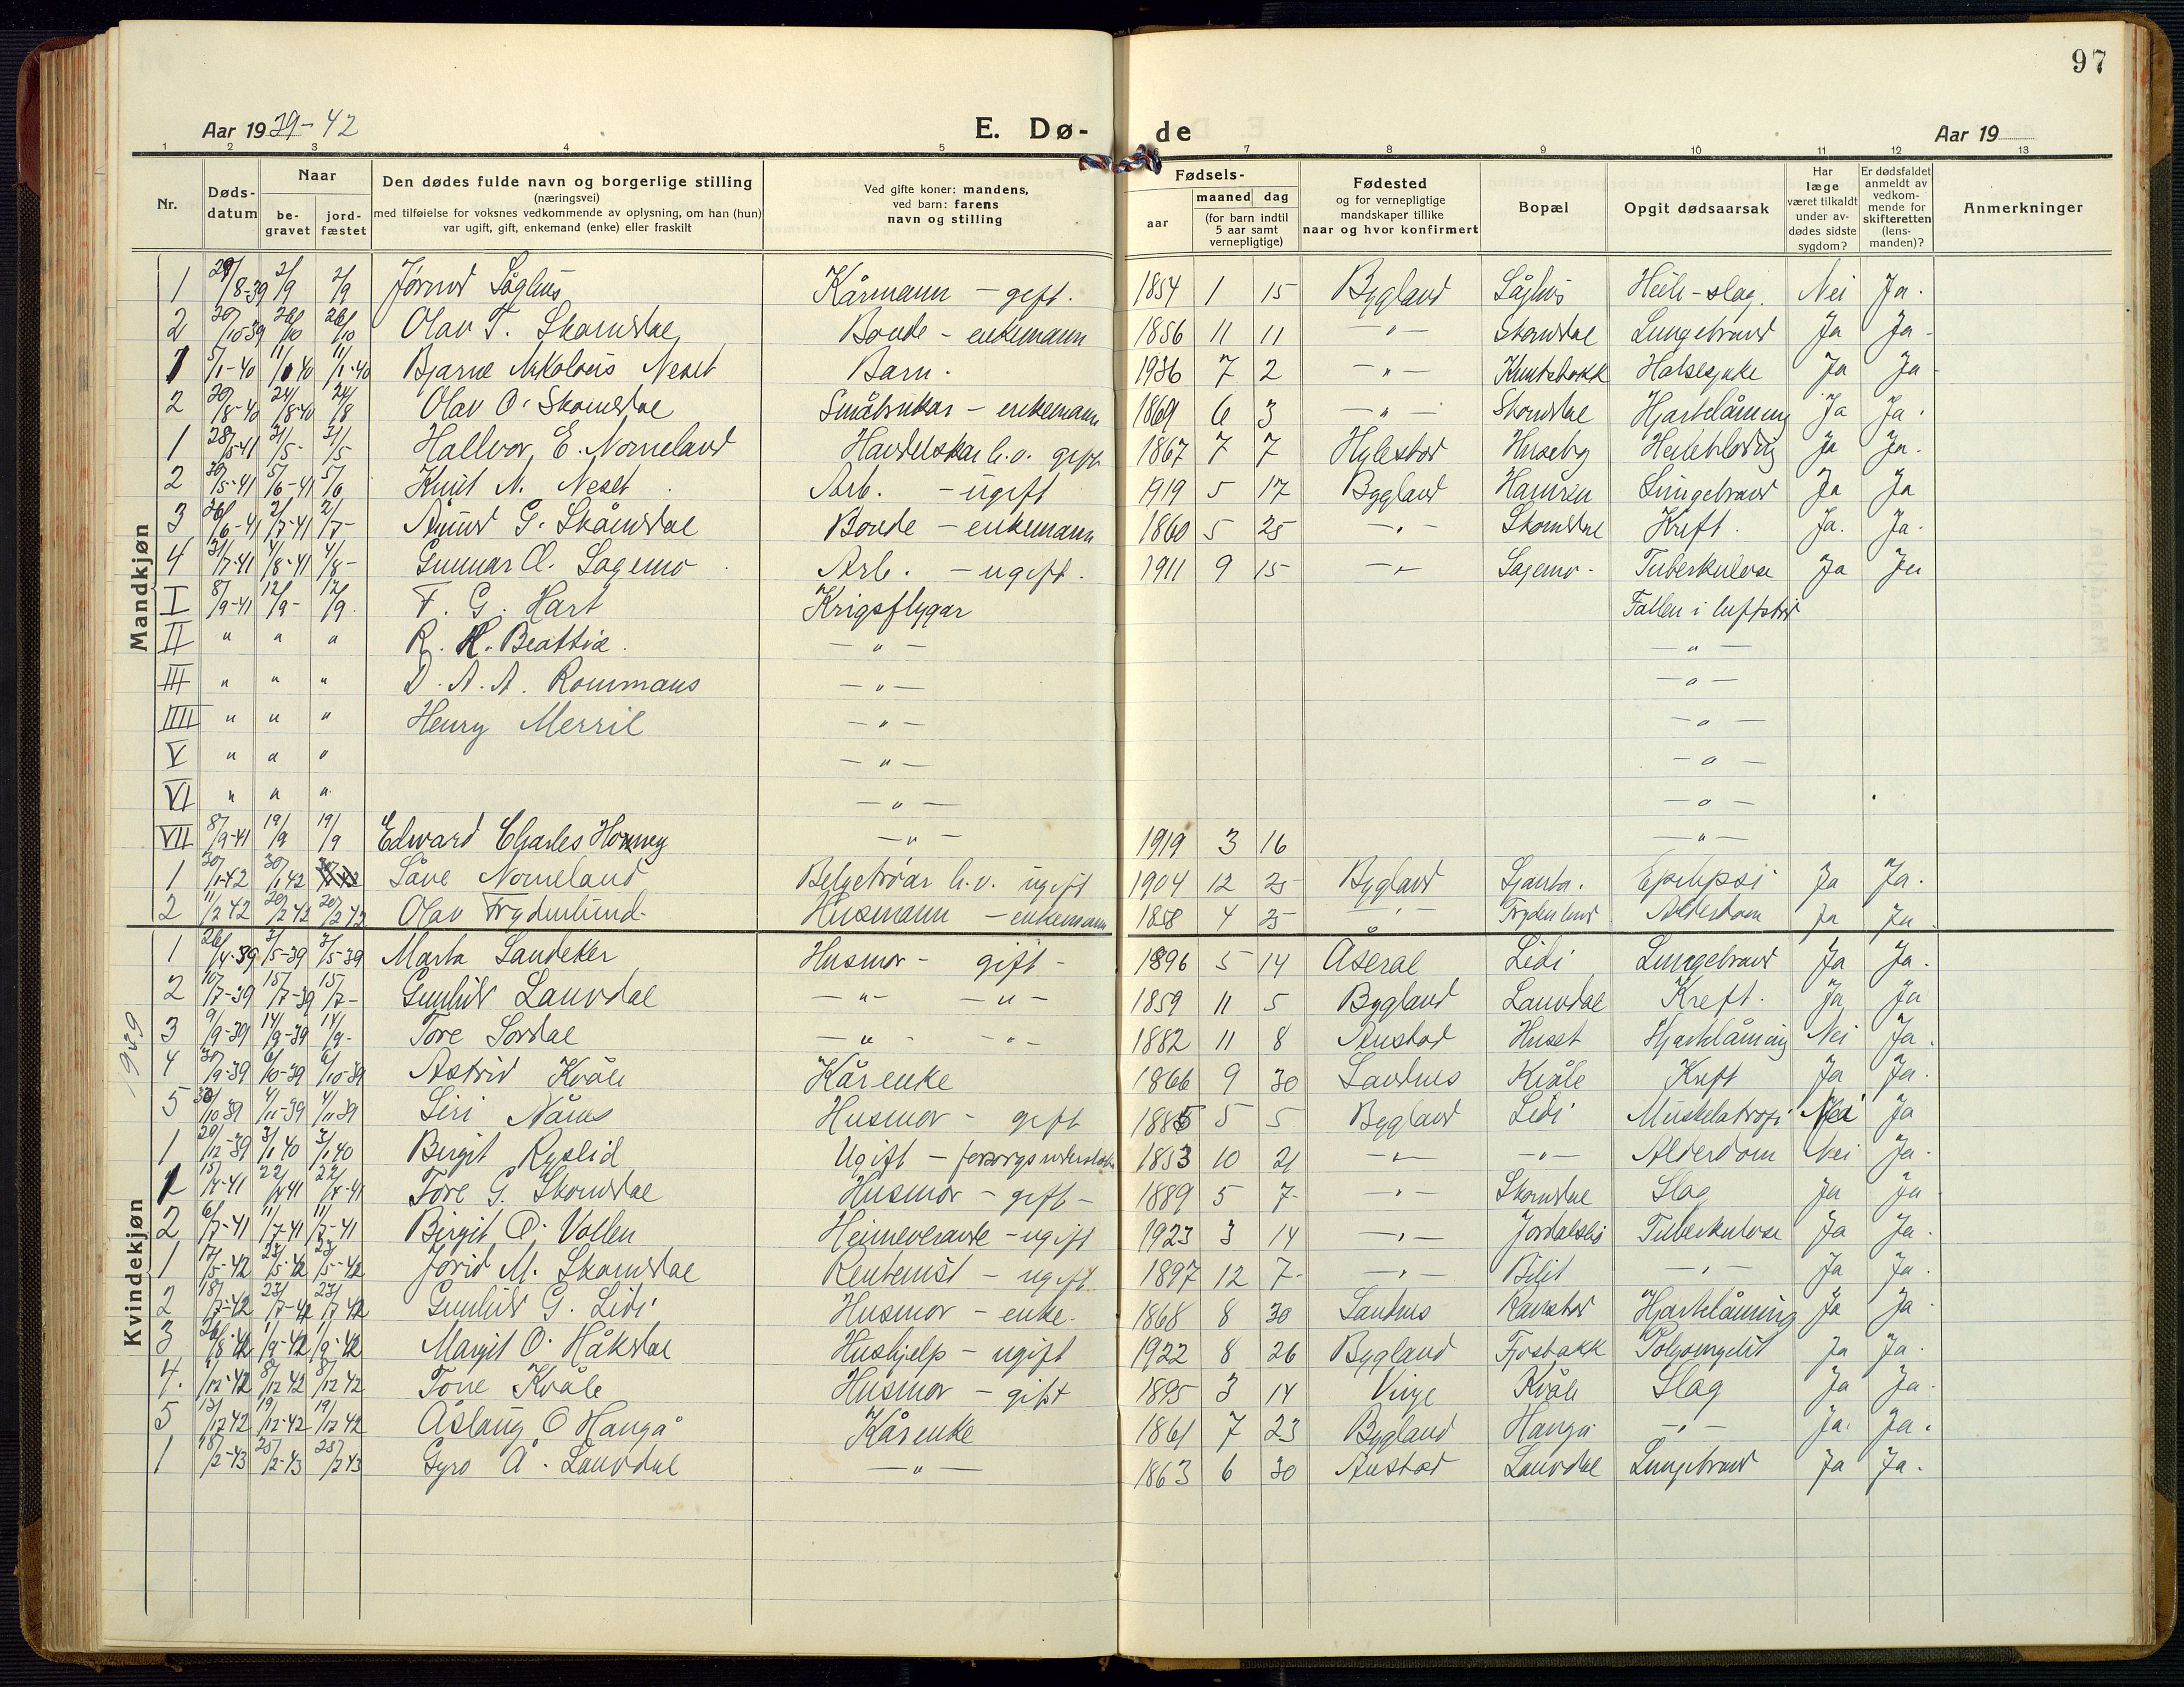 97
Aar 1939-42
E. Dø-
de
Aar 19
1 2 3 4 5 7 8 9 10 11 12 13
Nr.
Døds-datum
Naar
be-gravet
jord-fæstet
Den dødes fulde navn og borgerlige stilling
(næringsvei)
med tilføielse for voksnes vedkommende av oplysning, om han (hun)
var ugift, gift, enkemand (enke) eller fraskilt
Ved gifte koner: mandens,
ved barn: farens
navn og stilling
Fødsels-
aar
maaned dag
(for barn indtil 5 aar samt vernepligtige)
Fødested
og for vernepligtige mandskaper tillike
naar og hvor konfirmert
Bopæl
Opgit dødsaarsak
Har læge været tilkaldt under av-dødes sidste sygdom?
Er dødsfaldet anmeldt av vedkom-mende for skifteretten (lens-manden)?
Anmerkninger
Mandkjøn
1 29/8-39 2/9 2/9 Kårmann - gift. 1854 1 15 Bygland Nei Ja.
2 20/10-39 26/10 26/10 Olav T. Skomdal Bonde - enkemann 1856 11 11 -"- Skomdal Lungebrand Ja Ja
1 5/1-40 11/1 40 11/1-40 Bjarne Nikolaus Neset Barn. 1936 7 2 -"- Halsesjuke Ja Ja
2 20/8-40 24/8-40 24/8 Olav O. Skomdal Småbrukar - enkemann 1869 6 3 -"- Skomdal Hjartelåming Ja Ja.
1 28/5-41 31/5- 31/5 Hallvor E. Nomeland Handelskar h.v. gift 1867 7 7 Hylestad Huseby Heilebløding Ja Ja.
2 30/5-41 5/6-41 5/6 Knut N. Neset Arb. - ugift 1919 5 17 Bygland Lungebrand Ja Ja
3 26/6-41 2/7-41 2/7- Åmund G. Skåmdal Bonde - enkemann 1860 5 25 -"- Skomdal Kreft. Ja. Ja.
4 31/7-41 4/8-41 4/8- Gunnar O. Sagemo Arb. - ugift. 1911 9 15 -"- Sagemo - Tuberkulose Ja Ja
I 8/9-41 12/9- 12/9. F. G. Hart Krigsflygar Fallen i luftstrid
II " " " R. H. Beattie. -"- -"-
III " " " D. A. A. Rommans -"- -"-
IIII " " " Henry Merril -"- -"-
V " " " -"- -"-
VI " " " -"- -"-
VII 8/9-41 19/9 19/9 Edward Charles Horney -"- 1919 3 16 -"-
1 30/1-42 30/1 42 Såve Nomeland h.v. ugift 1904 12 25 Bygland Epilepsi Ja Ja.
2 11/2 42 20/2 42 20/2 42 Olav Frydenlund. Husmann - enkemann 1858 4 25 -"- Frydenlund Alderdom Ja Ja
Kvindekjøn
1939
1 26/4-39 3/5-39 3/5-39 Marta Sandeker Husmor - gift - 1896 5 14 Åseral Lidi Lungebrand Ja Ja.
2 10/7-39 15/7-39 15/7- Gunhild Lauvdal -"- -"- 1859 11 5 Bygland Lauvdal Kreft. Ja Ja
3 9/9-39 14/9-39 14/9- Tore Sordal -"- -"- 1882 11 8 Austad Huset Hjartelåming Nei Ja.
4 30/9-39 6/10-39 6/10-39 Astrid Kvåle Kårenke 1866 9 30 Sandnes Kvåle Kreft Ja Ja.
5 30/10 39 4/11-39 4/11 39 Siri Nåms Husmor - gift 1885 5 5 Bygland Lidi Muskelatropi Nei Ja
1 29/12-39 3/1 40 3/1 40 Birgit Ryslid Ugift - 1853 10 21 -"- -"- Alderdom Nei Ja.
1 15/4-41 22/4 41 22/4-41 Tore G. Skomdal Husmor - gift - 1889 5 7- -"- Skomdal Slag Ja Ja
2 6/7-41 11/7-41 11/7-41 Birgit O. Vollen Heimeverande - ugift 1923 3 14 -"- Tuberkulose Ja Ja.
1 17/5-42 23/5-42 23/5-42 Jorid M. Skomdal ugift 1897 12 7- -"- -"- Ja Ja.
2 18/7-42 23/7-42 23/7 42 Gunhild G. Lidi Husmor - enke. 1868 8 30 Sandnes Hjartelåming Ja Ja.
3 26/8-42 1/9-42 1/9-42 Margit O. Håkdal Hushjelp - ugift 1922 8 26 Bygland Fjosbakk Ja Ja.
4. 1/12-42 8/12 42 8/12 42 Tone Kvåle Husmor - gift 1895 3 14 Vinje Kvåle Slag Ja Ja.
5 13/12 42 19/12-42 19/12 42 Åslaug O Hangå Kårenke 1861 7 23 Bygland Hangå -"- Ja. Ja.
1 18/2-43 25/2-43 25/2 43 Gyro Å. Lauvdal -"- 1863 6 30 Austad Lauvdal Lungebrand Ja Ja.